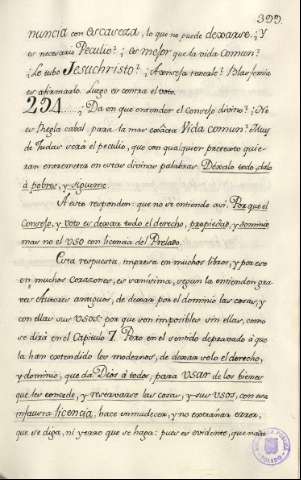 399.
nuncia con escaseza, lo que no puede dexarse. ¿Y
es necesario Peculio? ¿es mejor que la vida Comun?
¿Lo tubo Jesuchristo? ¿Aconsejó tenerle? Blasfemia
es afirmarlo. Luego es contra el voto.
294.... ¿Da en que entender el Consejo divino? ¿No
es Regla cabal, para la mas exacta Vida Comun? Muy
de Judas será el peculio, que con qualquier pretexto quie-
ran entremeter en estas divinas palabras. Déxalo todo, dálo
á pobres, y sigueme.
A esto responden: que no se entiende asi. Porque el
Consejo, y voto es dexar todo el derecho, propiedad, y dominio
mas no el uso con licencia del Prelado.
Esta respuesta, impresa en muchos libros, y por eso
en muchos corazones, es vanisima, segun la entienden gra-
ves Autores antiguos, de dexar por el dominio las cosas, y
con ellas sus usos: por que son imposibles sin ellas, como
se dirá en el Capitulo 7. Pero en el sentido depravado á que
la han extendido los modernos, de dexar solo el derecho,
y dominio, que dá Dios á todos, para usar de los bienes
que les concede, y reservarse las cosas, y sus usos, con esta
infausta licencia, hace enmudecer, y no extrañar error,
que se diga, ni yerro que se haga: pues es evidente, que nada